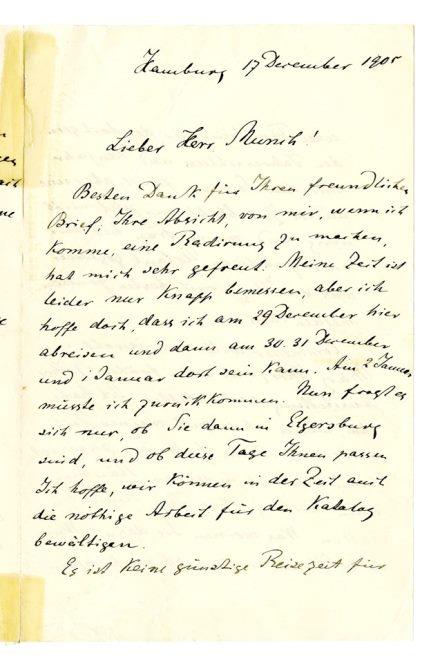 Hamburg 17 December 1905
Lieber Herr Munch!
Besten Dank für Ihren freundlichen
Brief, Ihre Absicht, von mir, wenn ich
komme, eine Radirung zu machen,
hat mich sehr gefreut. Meine Zeit ist
leider nur knapp bemessen, aber ich
hoffe doch, dass ich am 29 December hier
abreisen und dann am 30. 31 December
und 1 Januar dort sein kann. Am 2 Januar
müsste ich zurückkommen. Nun fragt es
sich nur, ob Sie dann in Elgersburg
sind, und ob diese Tage Ihnen passen
Ich hoffe, wir können in der Zeit auch
die nöthige Arbeit für den Katalog
bewältigen.
Es ist keine günstige Reisezeit für